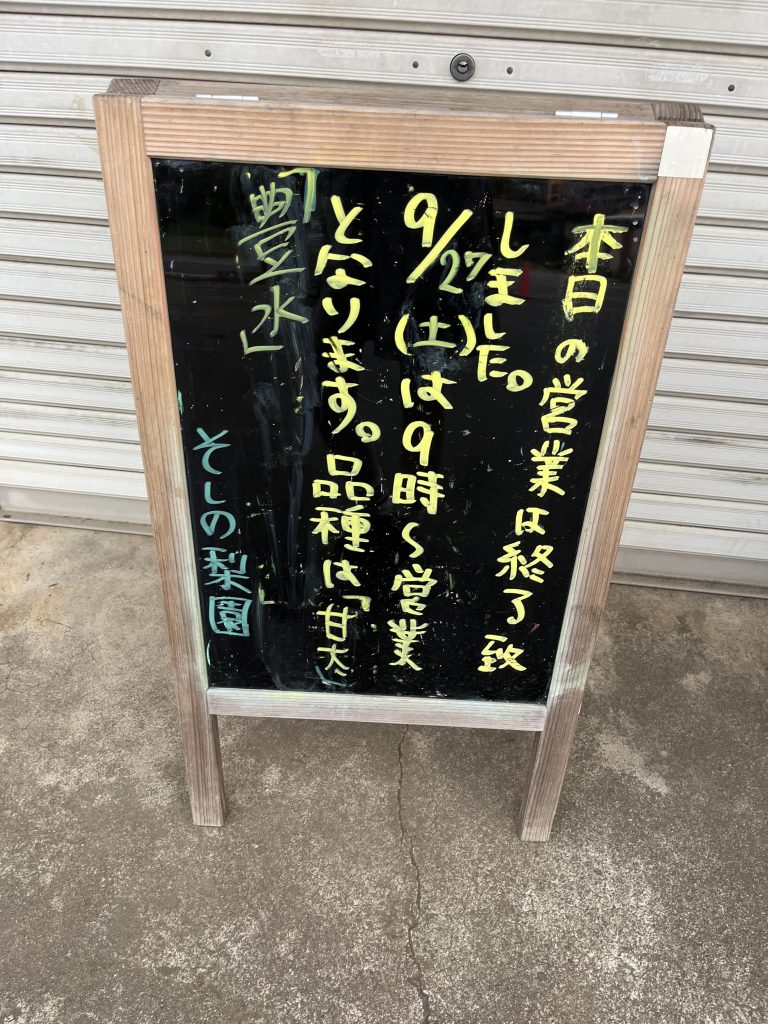 本日の営業は終了致
しました。
9/27(土)は9時〜営業
となります。品種は「甘太」
「豊水」
そしの梨園